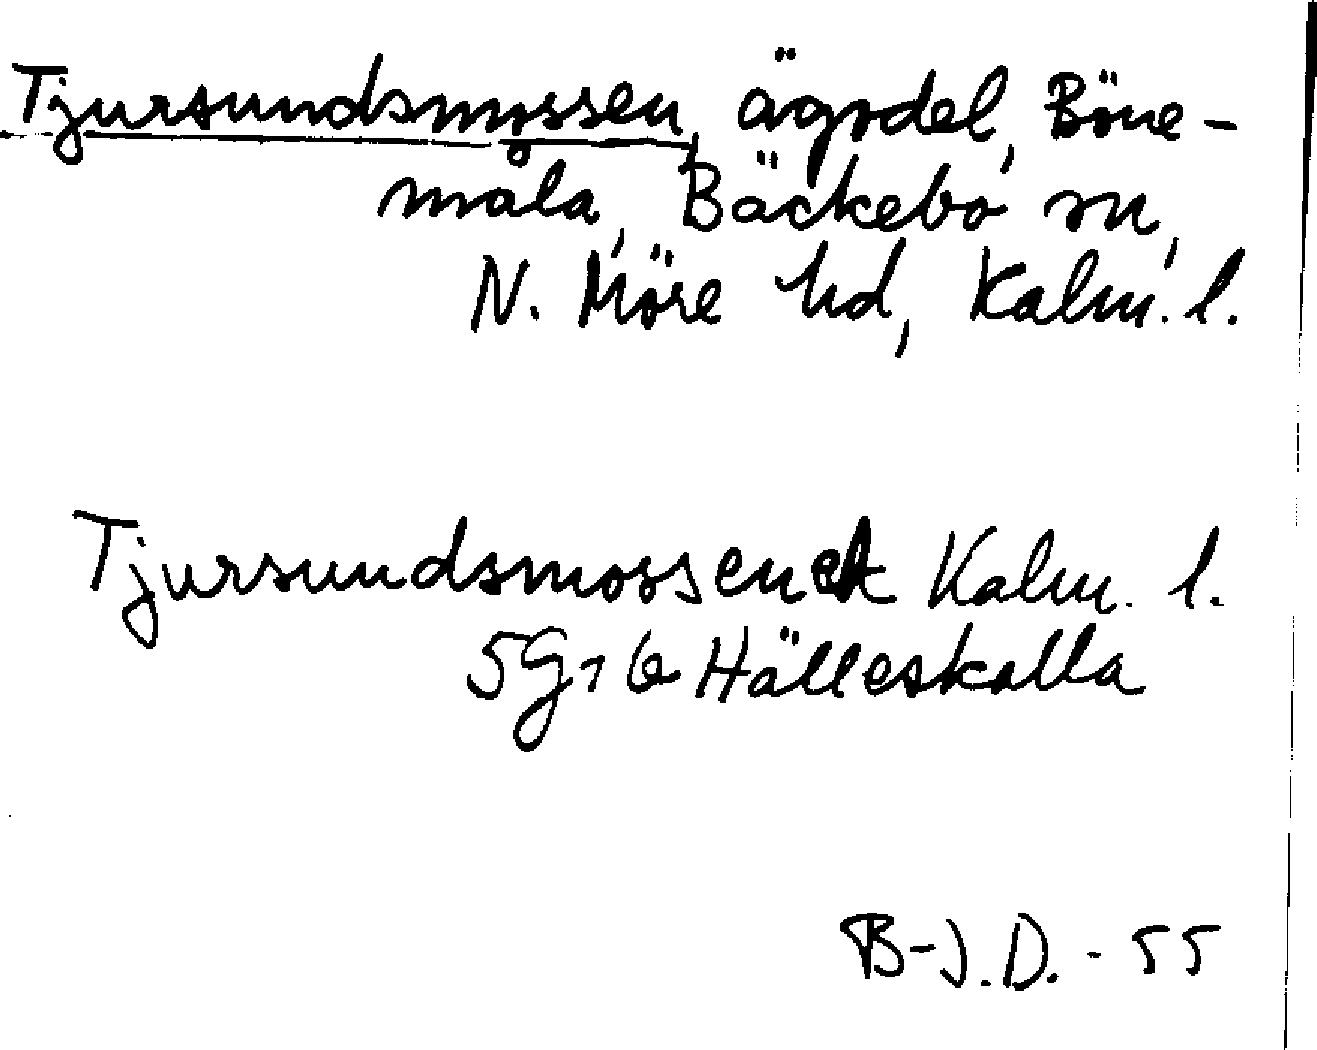 Tjursundsmossen, ägodel, Böne-
måla, Bäckebo sn,
N. Möre hd, Kalm. l.
Tjursundsmossen ek Kalm. l.
5G1 6 Hälleskalla
B-J.D. - 55